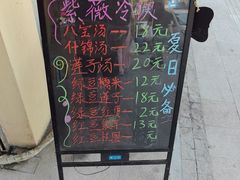 紫薇冷饮
八宝汤——18元
什锦汤——22元
莲子汤——20元
绿豆糯米12元
绿豆莲子18元
绿豆 2元
绿豆 13元
夏日必备